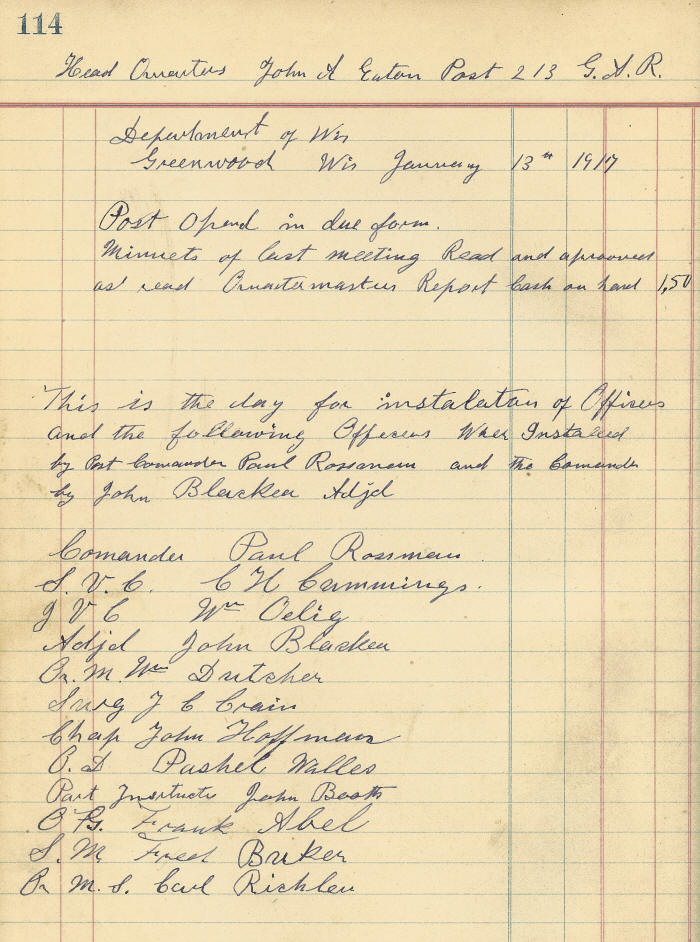 114
Head Quarters John A Eaton Post 213 G.A.R.
Department of Wis
Greenwood Wis January 13th 1917
Post Opend in due form.
Minnets of last meeting Read and aprooved
as read Quartermasters Report Cash on hand 1,50
This is the day for instalation of Officers
and the following Officers Wher Instaled
by Post Comander Paul Rossman and the Comander
by John Blacker Adjd
Comander Paul Rossman
S. V. C. C H Cummings.
J V C Wm Oelig
Adjd John Blacker
Qr. M. Wm Dutcher
Surg J C Crain
Chap John Hoffman
O. d Pashel Walles
Part Instructr John Booth
O G. Frank Abel
S. M Fred Buker
Qr M. S. Carl Richlew